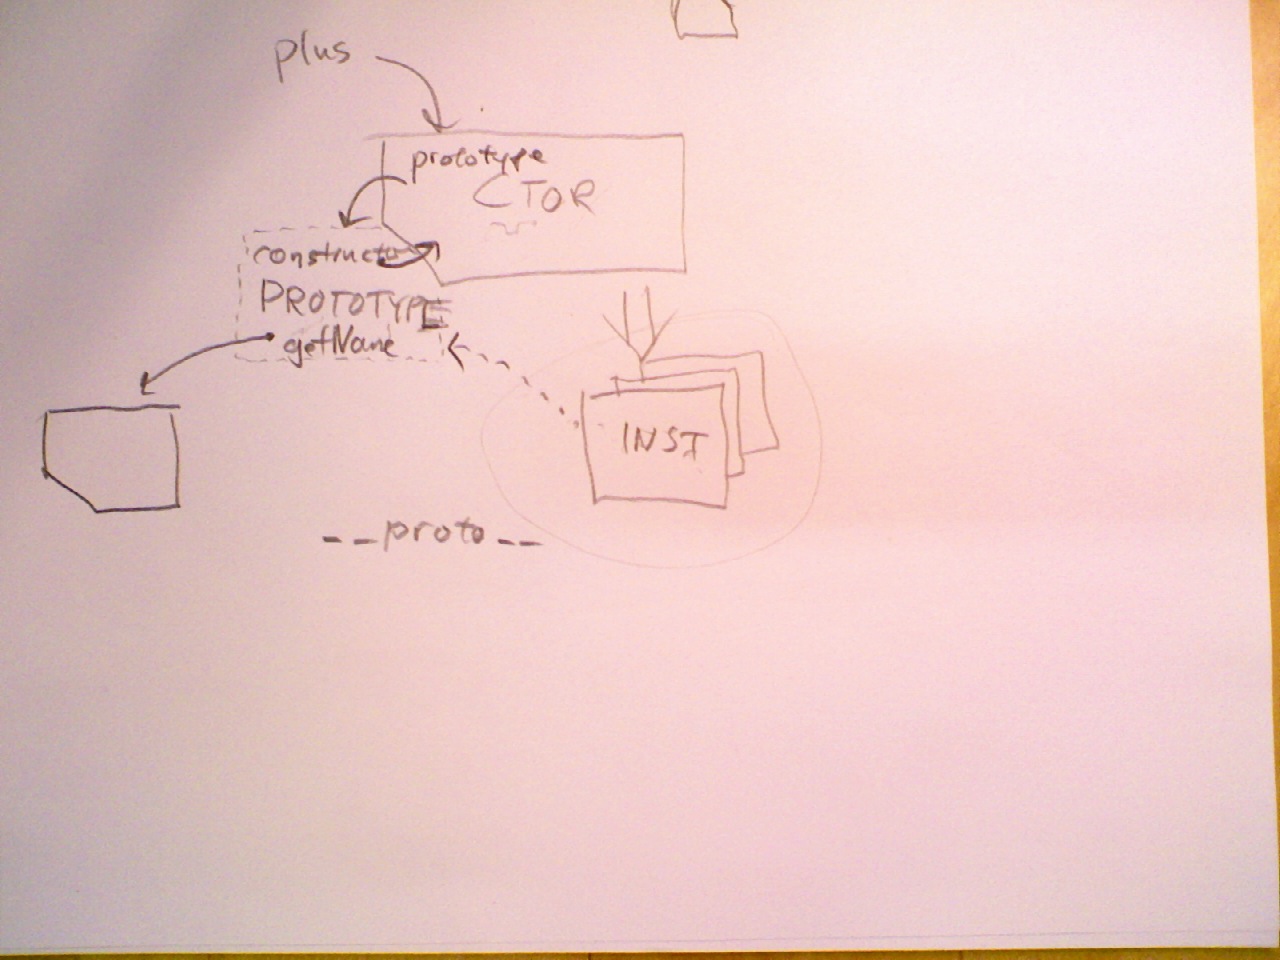 plus
prototype
CTOR
constructo
PROTOTYPE
getName
INST
__proto__